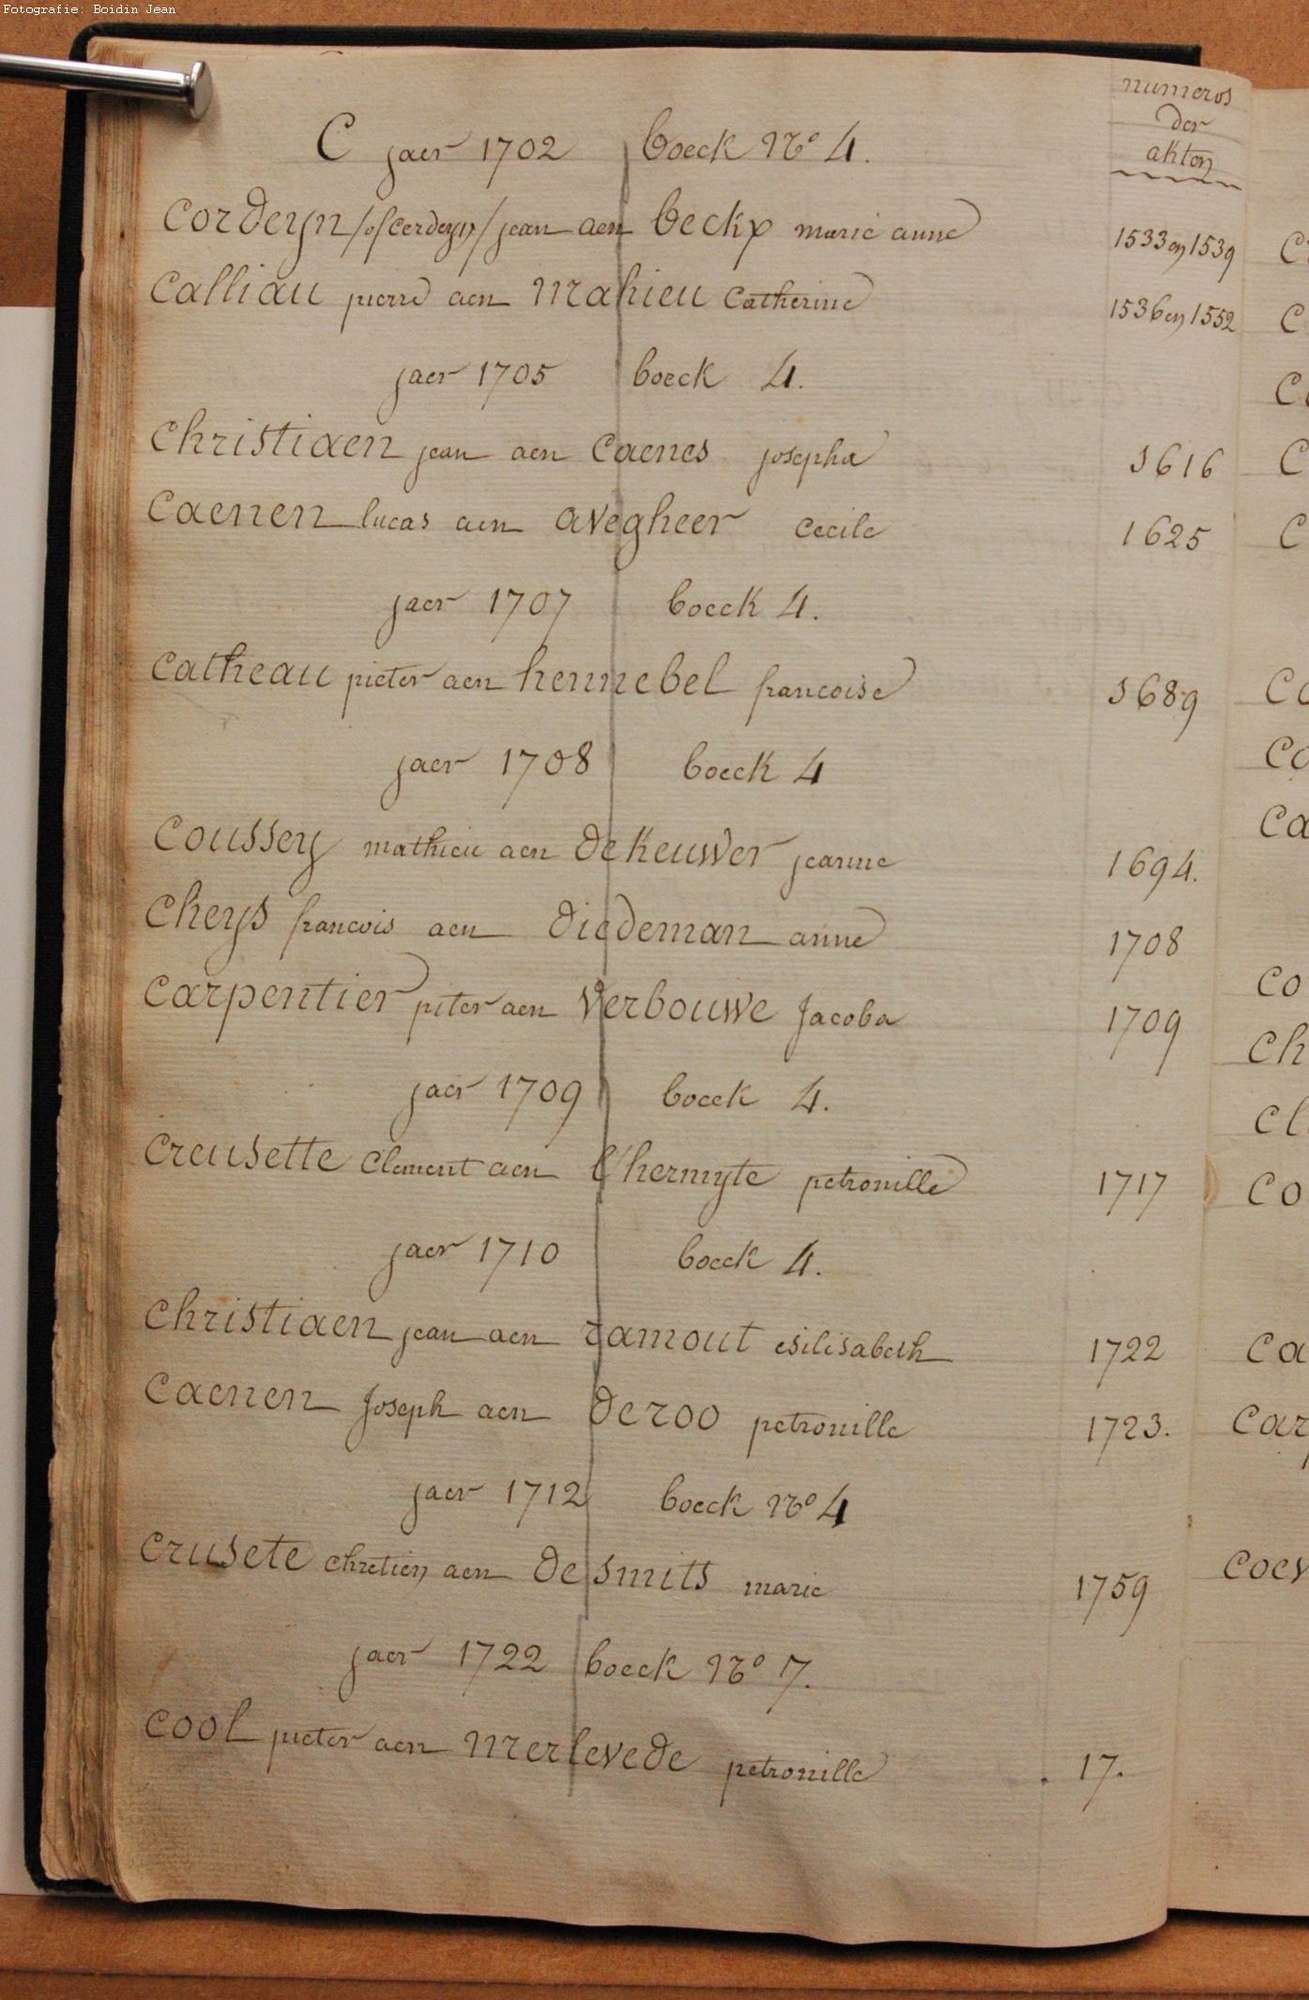 Fotografie: Boidin Jean
numeros
der
akten
C jaer 1702 boeck No 4.
Cordeyn /of Cerdeyn/ jean aen beckx marie anne 1533 en 1539
Calliau pierre aen Mahieu Catherine 1536 en 1552
jaer 1705 boeck 4.
Christiaen jean aen Caenes josepha 1616
Caenen lucas aen avegheer Cecile 1625
jaer 1707 boeck 4.
Catheau pieter aen hennebel francoise 1689
jaer 1708 boeck 4
Coussey mathieu aen dekeuwer jeanne 1694.
Cheys francois aen diedeman anne 1708
Carpentier piter aen verbouwe Jacoba 1709
jaer 1709 boeck 4.
Creusette Clement aen l'hermyte petronille 1717
jaer 1710 boeck 4.
Christiaen jean aen ramout esilisabeth 1722
Caenen Joseph aen deroo petronille 1723.
jaer 1712 boeck No 4
Crusete chretien aen de smits marie 1759
jaer 1722 boeck No 7.
Cool pieter aen Merlevede petronille . 17.